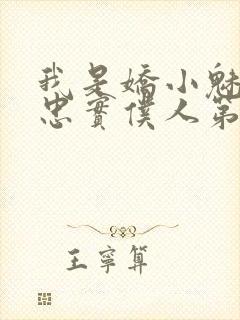 我是嬌小魅
忠實僕人第
王寧算